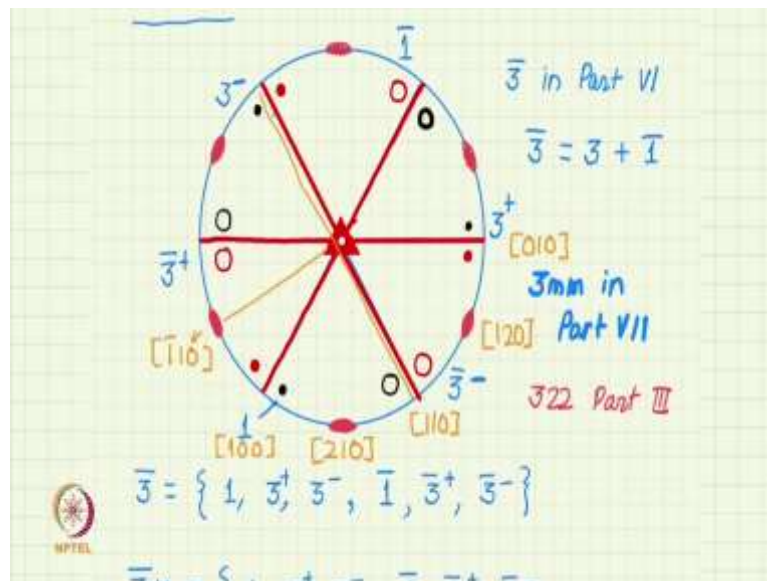 1̅
3̅ in Part VI
3⁻
3̅ = 3 + 1̅
3⁺
[010]
3̅⁺
3mm in
Part VII
[1̅10]
[120]
3̅⁻
322 Part III
1
[100]
[210]
[110]
3̅ = { 1, 3⁺, 3⁻, 1̅, 3̅⁺, 3̅⁻ }
NPTEL